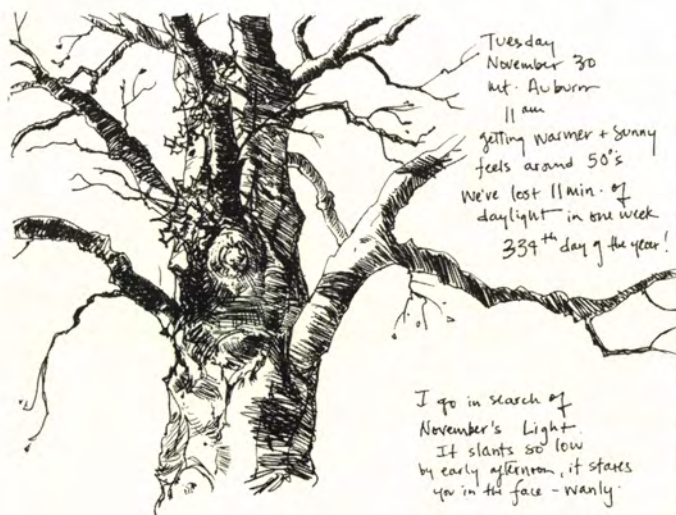 Tuesday
November 30
Mt. Auburn
11 am
getting warmer + sunny
feels around 50's
We've lost 11 min. of
daylight in one week
334th day of the year!
I go in search of
November's Light.
It slants so low
by early afternoon, it stares
you in the face - wanly.